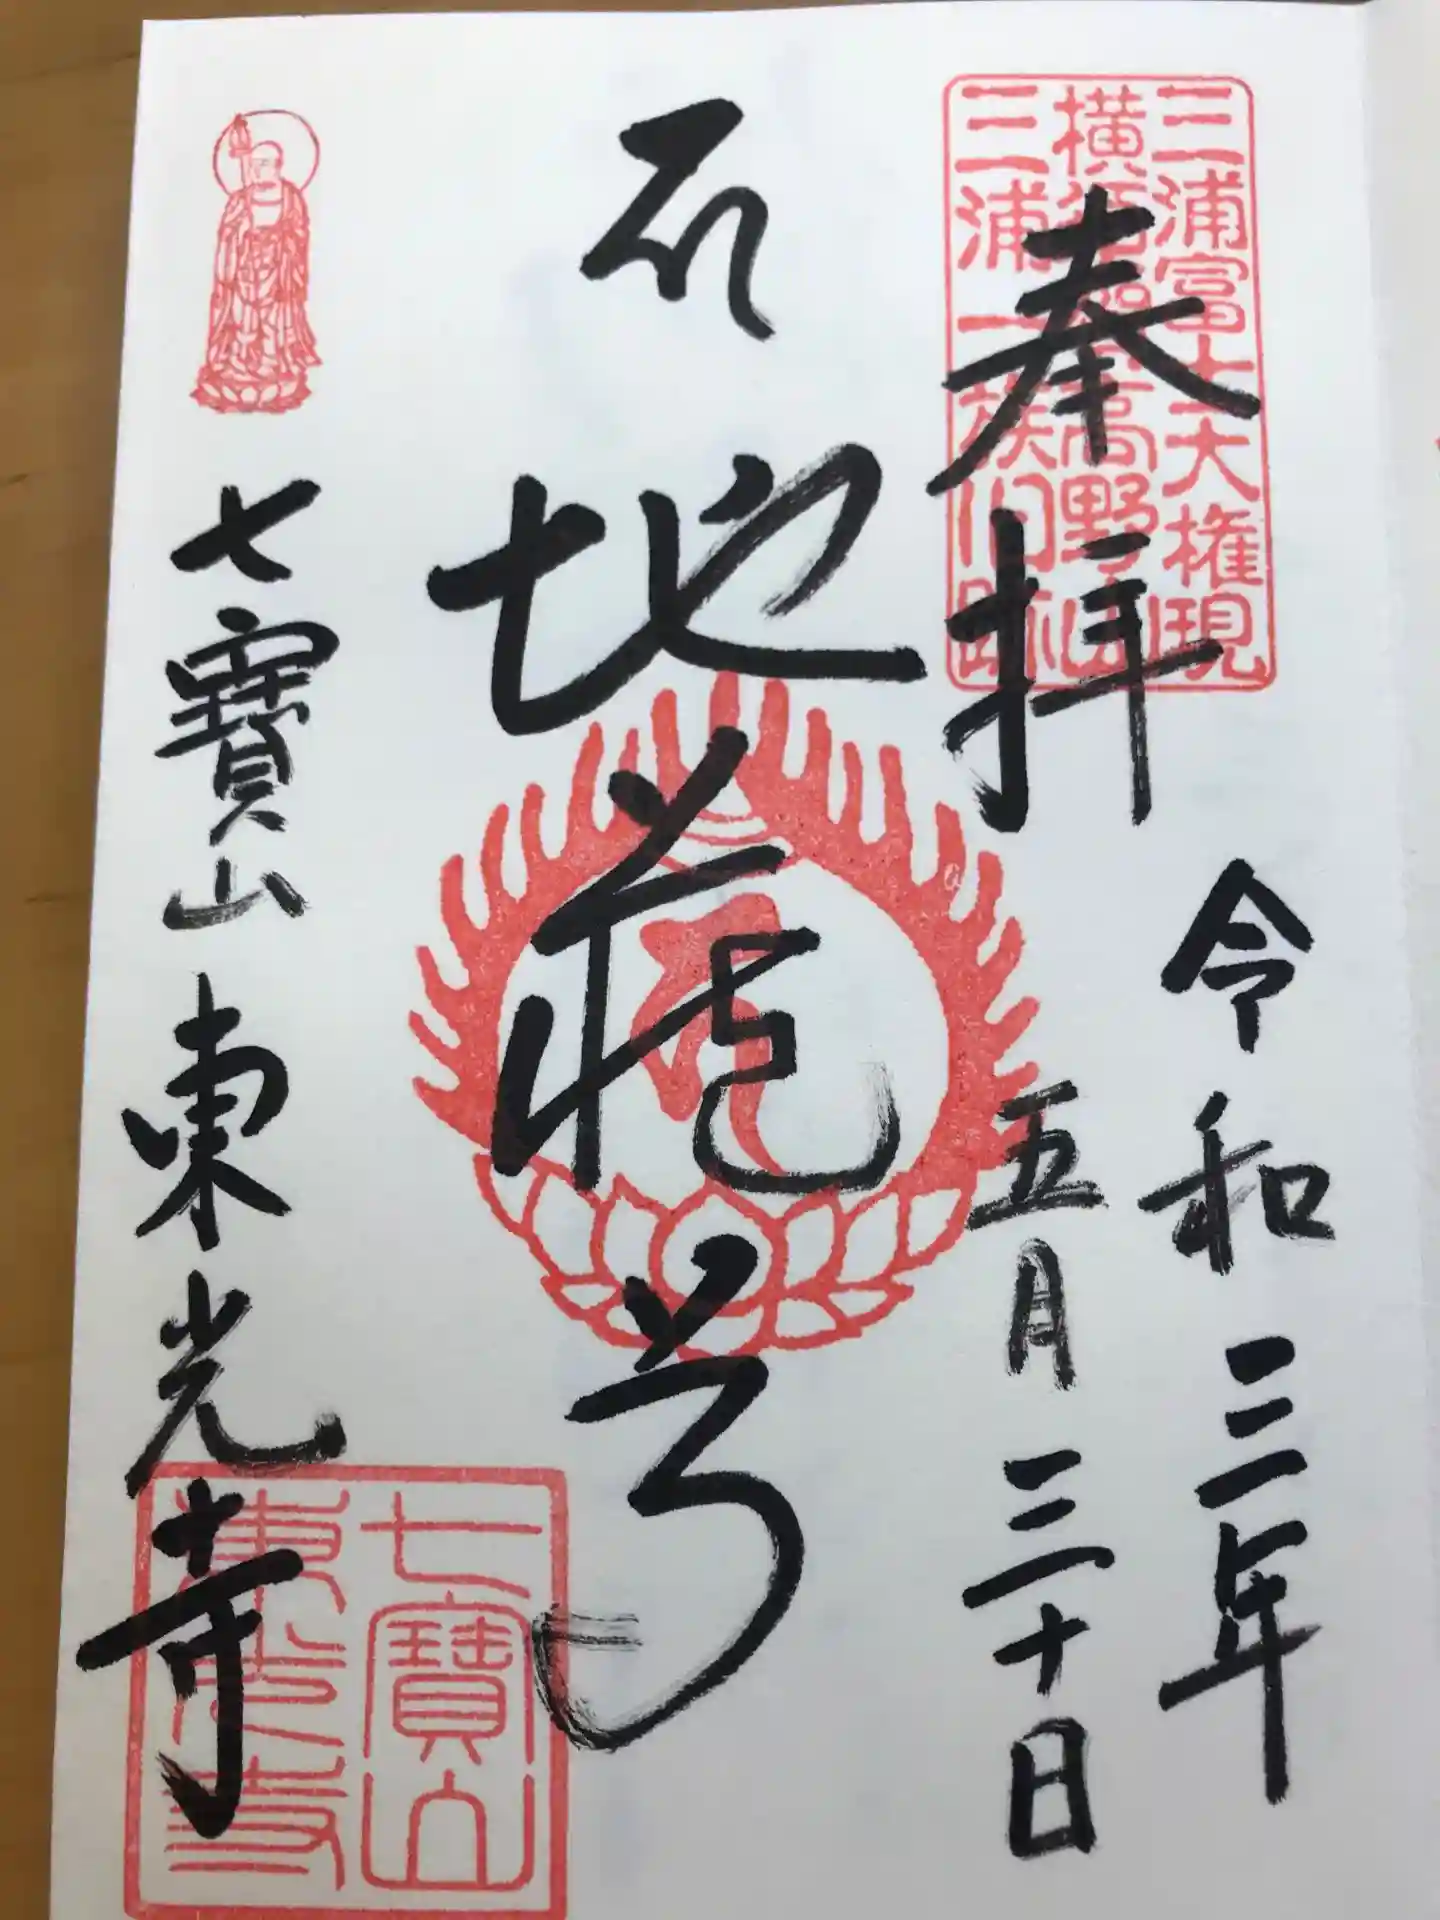 三浦富士大権現
横須賀高野山
三浦一族旧跡
奉拝
令和三年
五月三十日
地蔵尊
七寶山東光寺
七寶山
東光寺